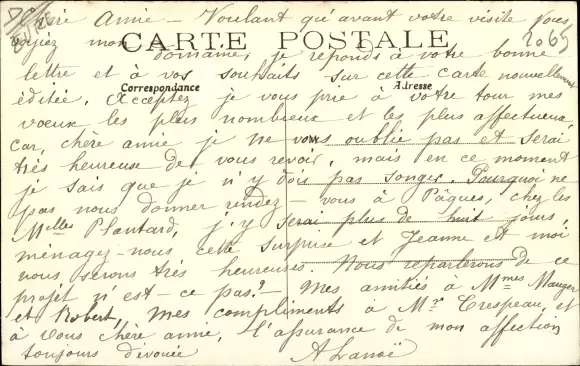 Chère Amie – Voulant qu'avant votre visite vous
voyiez mon domaine, je réponds à votre bonne
CARTE POSTALE
2065
lettre et à vos souhaits sur cette carte nouvellement
Correspondance
Adresse
éditée. Acceptez je vous prie à votre tour mes
vœux les plus nombreux et les plus affectueux
car, chère amie, je ne vous oublie pas et serai
très heureuse de vous revoir, mais en ce moment
je sais que je n'y dois pas songer. Pourquoi ne
pas nous donner rendez-vous à Pâques, chez les
Melles Plantard, j'y serai plus de huit jours,
ménagez-nous cette surprise et Jeanne et moi
nous serons très heureuses. Nous reparlerons de ce
projet n'est ce pas? – Mes amitiés à Mmes Mauger
et Robert, Mes compliments à Mr Crespeau, et
à vous chère amie, l'assurance de mon affection
toujours dévouée
A Lanoë